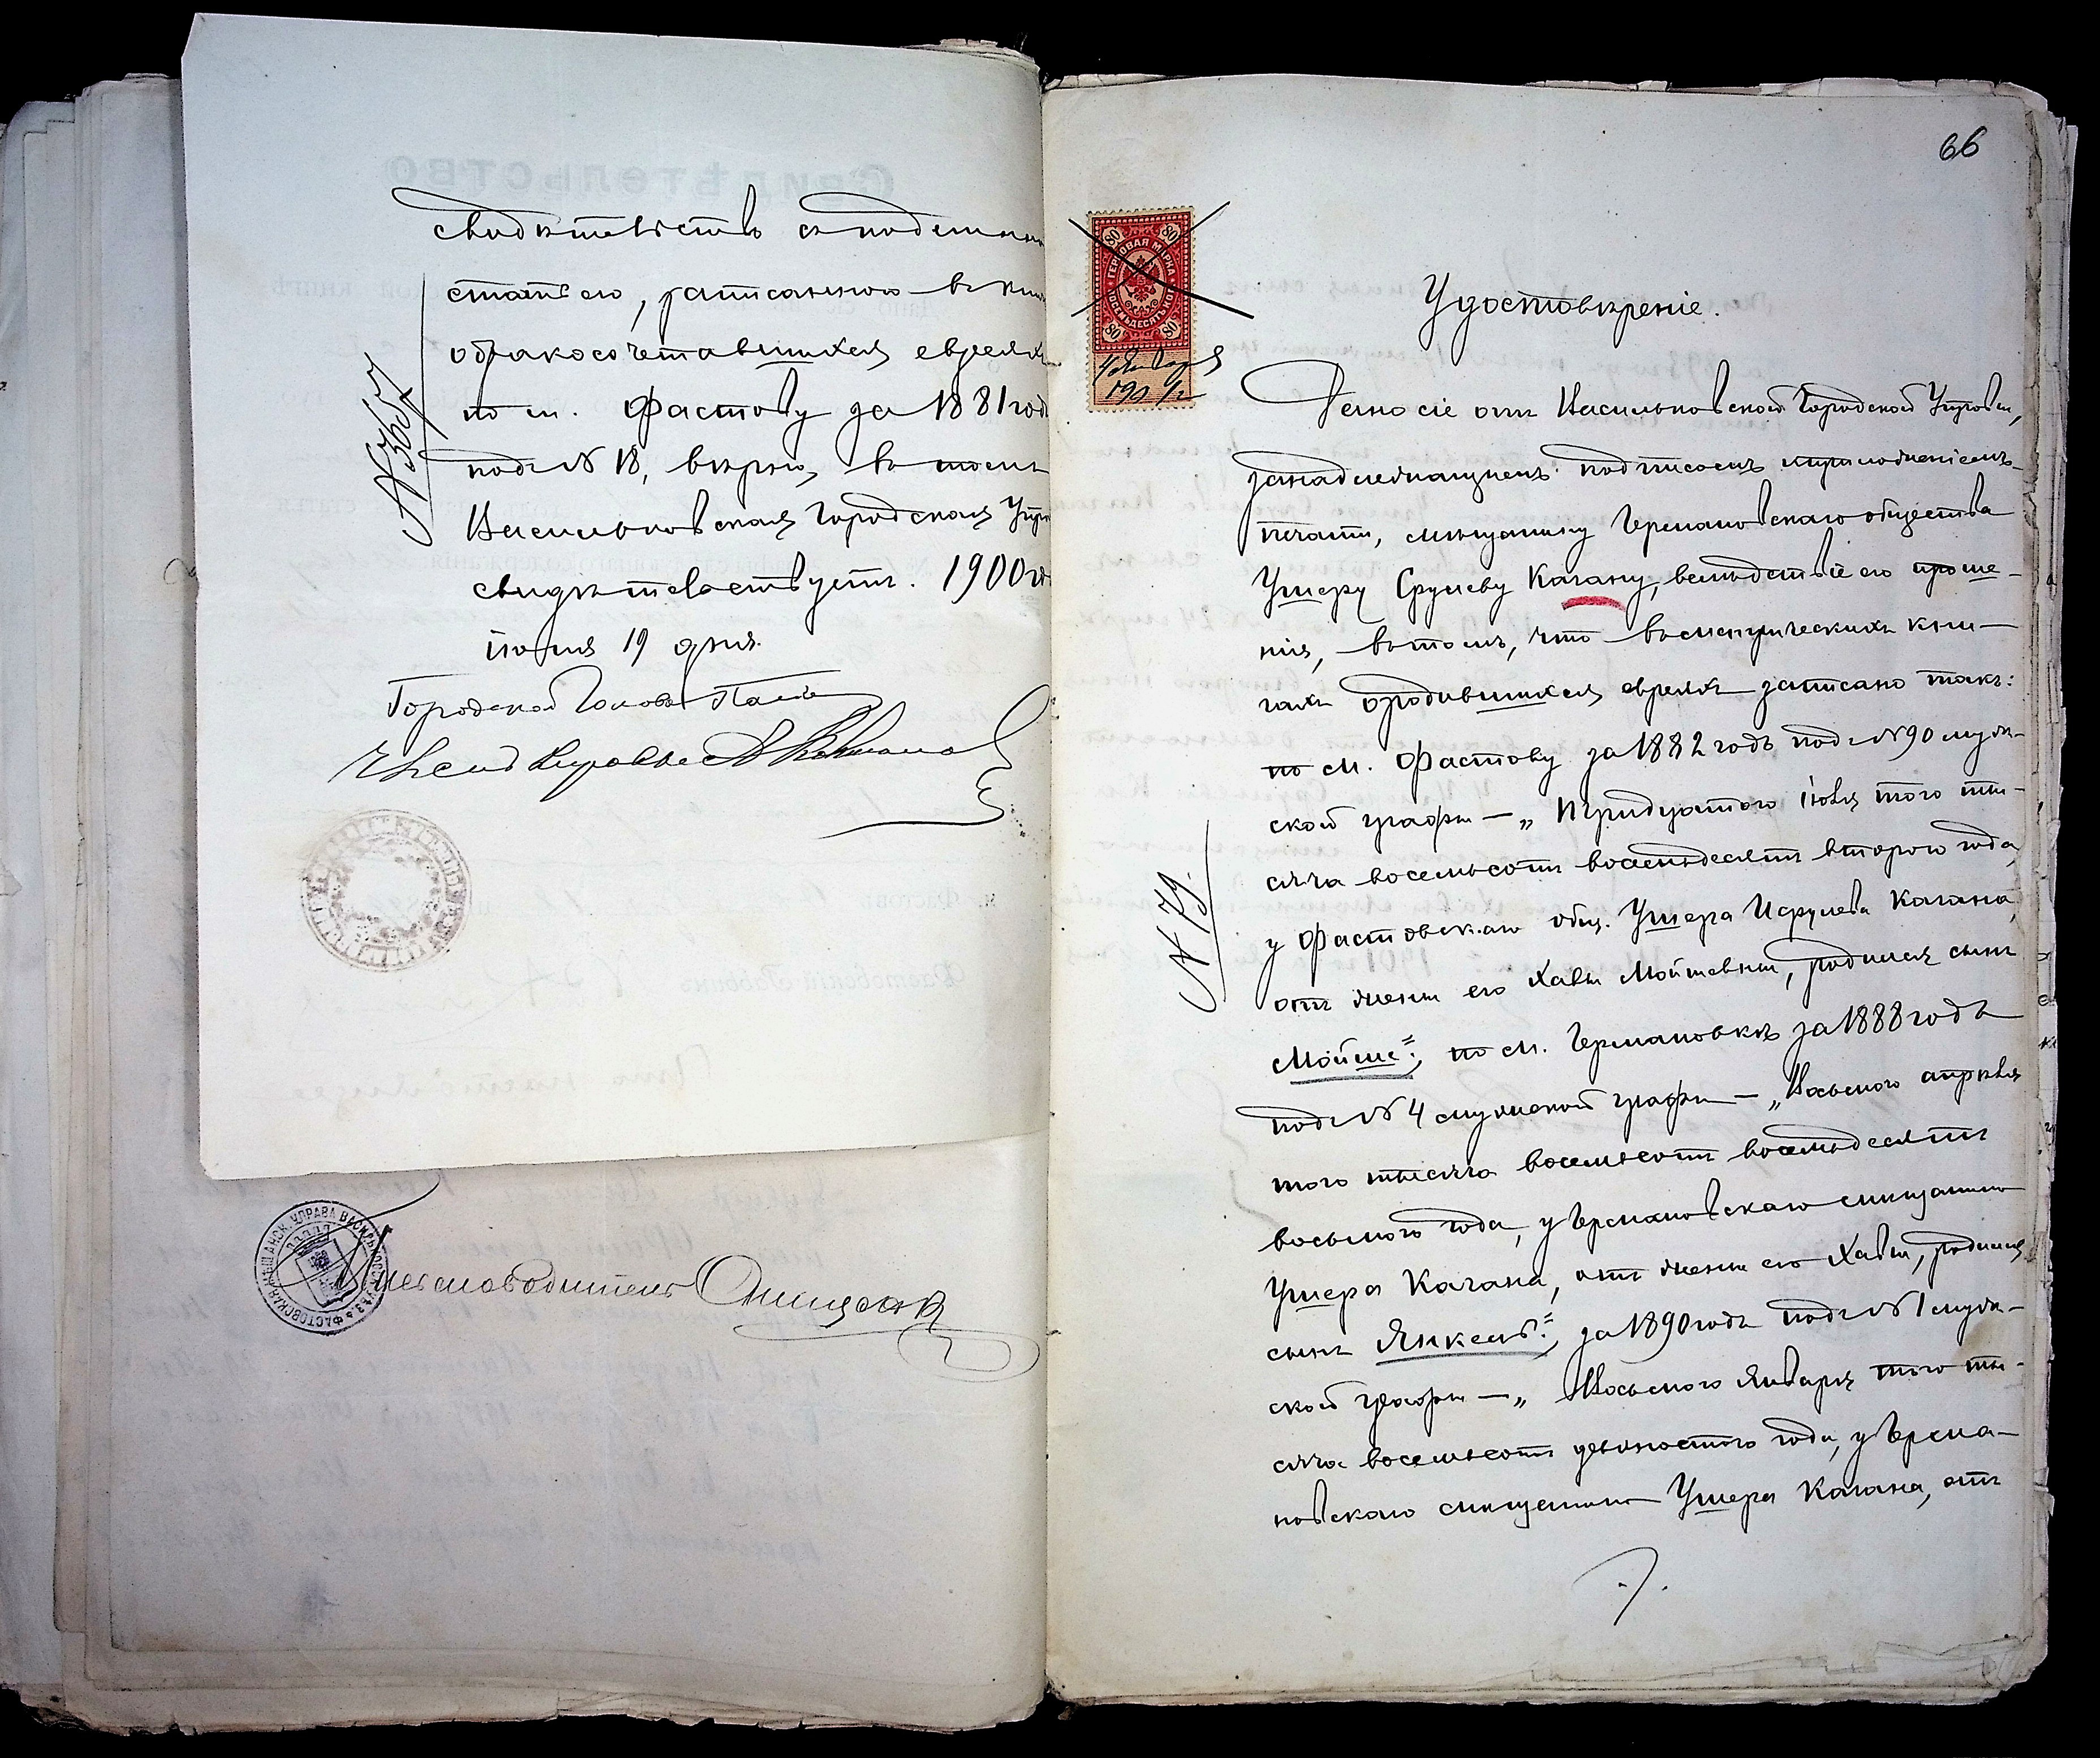 свидѣтельство съ подлинно
статьею, записанною въ кни
обракосочетавшихся евреяхъ
по м. Фастову за 1881 годъ
подъ № 18, вѣрно, въ томъ
Васильковская Городская Упра
свидѣтельствуетъ. 1900 го
іюня 19 дня.
Городской Голова
Членъ Управы
№ 3667
ФАСТОВСКАЯ МѢЩАНСК. УПРАВА ВАСИЛЬКОВСК. УѢЗ.
Письмоводитель
66
80 80
ГЕРБОВАЯ МАРКА
ВОСЕМЬДЕСЯТЪ КОП.
80 80
4 января
1901 г.
Удостовѣреніе.
Дано сіе отъ Васильковской Городской Управы,
за надлежащимъ подписомъ и приложеніемъ
печати, мѣщанину Германовскаго общества
Ушеру Срулеву Кагану, вслѣдствіе его проше-
нія, въ томъ, что въ метрическихъ кни-
гахъ о родившихся евреяхъ записано такъ:
по м. Фастову за 1882 годъ подъ № 90 муж-
ской графы — „Тридцатого іюля того ты-
сяча восемьсотъ восемьдесятъ второго года,
у Фастовскаго общ. Ушера Исрулева Кагана,
отъ жены его Хавы Мойшевны, родился сынъ
Мойше“; по м. Германовкѣ за 1888 годъ
подъ № 4 мужской графы — „Восьмого апрѣля
того тысяча восемьсотъ восемьдесятъ
восьмого года, у Германовскаго мѣщанина
Ушера Кагана, отъ жены его Хавы, родился
сынъ Янкель“; за 1890 годъ подъ № 1 муж-
ской графы — „Восьмого Января того ты-
сяча восемьсотъ девяностого года, у Герма-
новскаго мѣщанина Ушера Кагана, отъ
№ 79.